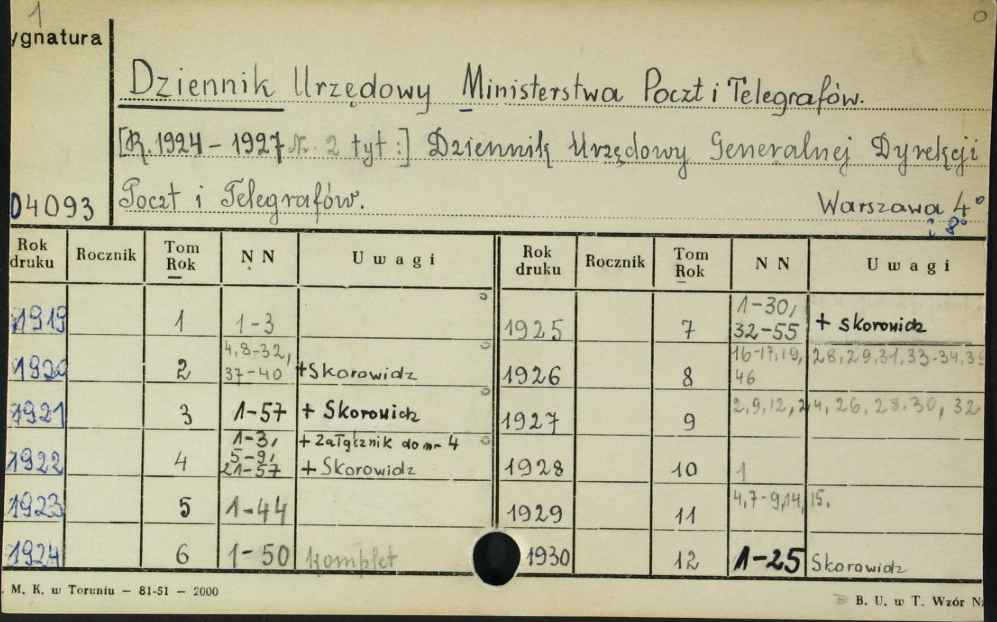 1
ygnatura
Dziennik Urzędowy Ministerstwa Poczt i Telegrafów.
[R. 1924 - 1927 Nr. 2 tyt:] Dziennik Urzędowy Generalnej Dyrekcji
04093 Poczt i Telegrafów. Warszawa 4°
i 8°
Rok druku Rocznik Tom Rok N N Uwagi
1919 1 1-3
1920 2 4, 8-32, 37-40 + Skorowidz
1921 3 1-57 + Skorowidz
1922 4 1-3, 5-9, 21-57 + załącznik do nr 4 + Skorowidz
1923 5 1-44
1924 6 1-50 komplet
Rok druku Rocznik Tom Rok N N Uwagi
1925 7 1-30, 32-55 + Skorowidz
1926 8 16-17, 19, 28, 29, 31, 33-34, 39 46
1927 9 2, 9, 12, 24, 26, 28, 30, 32
1928 10 1
1929 11 4, 7-9, 14, 15.
1930 12 1-25 Skorowidz
. M. K. w Toruniu — 81-51 — 2000
B. U. w T. Wzór N